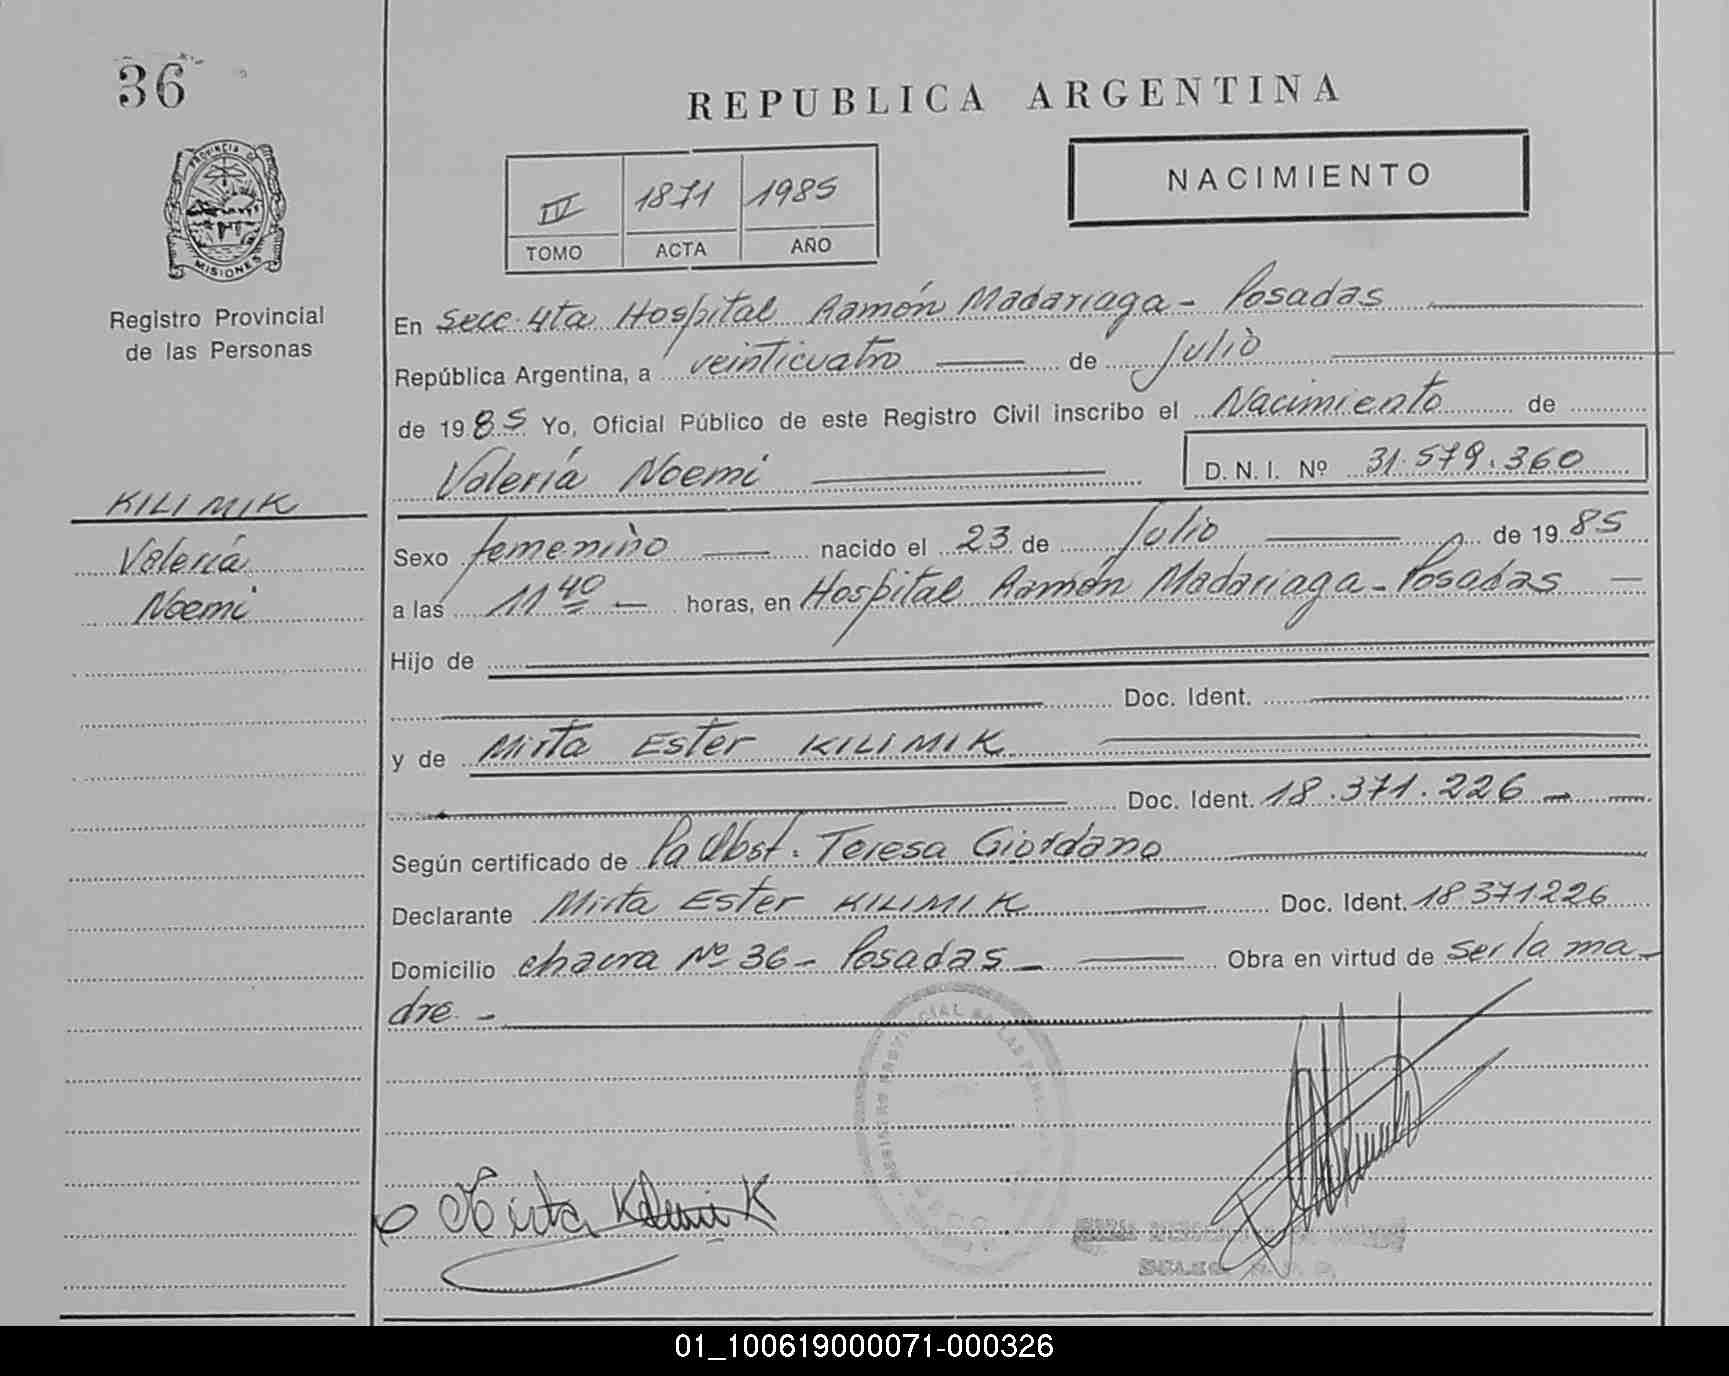 36
REPUBLICA ARGENTINA
PROVINCIA DE
MISIONES
IV 1871 1985
TOMO ACTA AÑO
NACIMIENTO
Registro Provincial
de las Personas
En Secc. 4ta Hospital Ramón Madariaga - Posadas
República Argentina, a veinticuatro de Julio
de 1985 Yo, Oficial Público de este Registro Civil inscribo el Nacimiento de
Valería Noemi D. N. I. Nº 31.579.360
KILIMIK
Valería
Noemi
Sexo femenino nacido el 23 de Julio de 1985
a las 11 40 horas, en Hospital Ramón Madariaga - Posadas
Hijo de
Doc. Ident.
y de Mirta Ester KILIMIK
Doc. Ident. 18.371.226
Según certificado de Pa Obst. Teresa Giordano
Declarante Mirta Ester KILIMIK Doc. Ident. 18371226
Domicilio chacra Nº 36 - Posadas - Obra en virtud de ser la ma-
dre. -
PROVINCIAL DE LAS
Mirta Kilimik
01_100619000071-000326